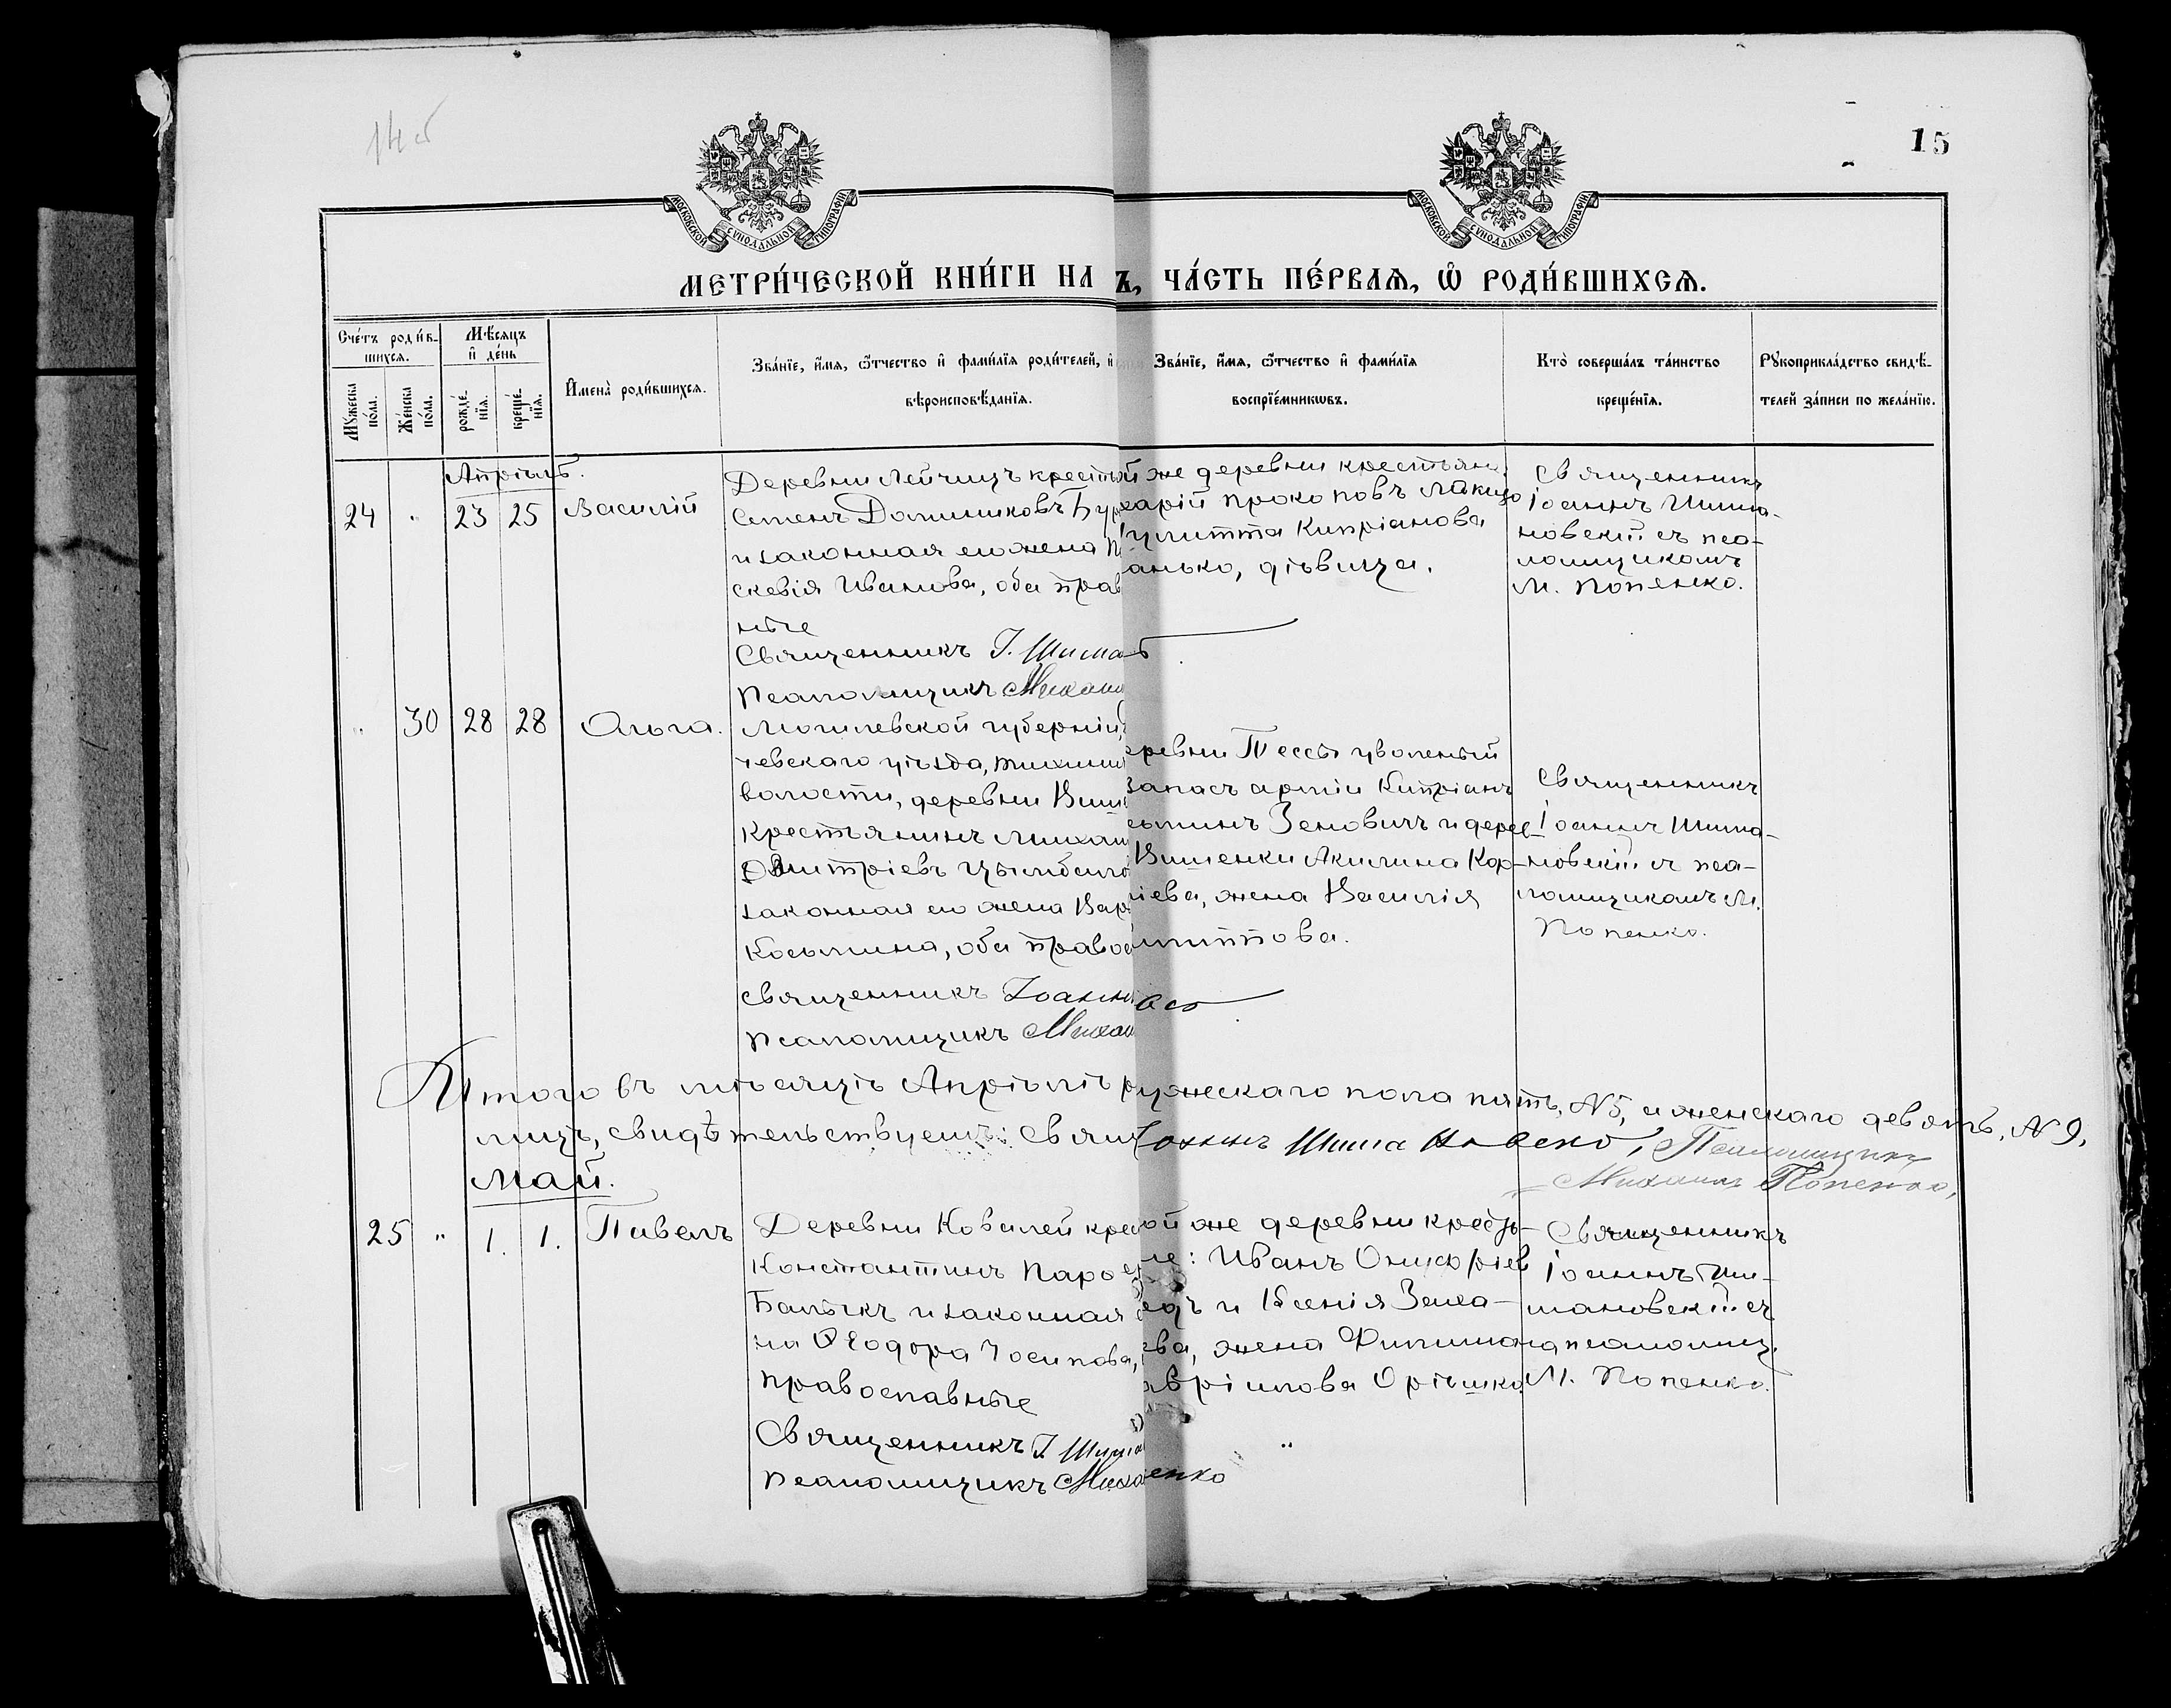 14 об
15
МОСКОВСКОЙ СѴНОДАЛЬНОЙ ТИПОГРАФІИ
МОСКОВСКОЙ СѴНОДАЛЬНОЙ ТИПОГРАФІИ
МЕТРИ́ЧЕСКОЙ КНИ́ГИ НА
Ъ, ЧА́СТЬ ПЕ́РВАѦ, Ѡ҆ РОДИ́ВШИХСѦ.
Сче́тъ роди́в-
шихся.
Мѣ́сяцъ
и҆ де́нь
Мꙋ́жеска
по́ла.
Же́нска
по́ла.
рожде́-
нїя.
креще́-
нїя.
И҆мена̀ роди́вшихся.
Зва́нїе, и҆́мя, ѻ҆́тчество и҆ фами́лїя роди́телей, и҆
вѣроисповѣ́данїя.
Зва́нїе, и҆́мя, ѻ҆́тчество и҆ фами́лїя
воспрїе́мникѡвъ.
Кто̀ соверша́лъ та́инство
креще́нїя.
Рꙋкоприкла́дство свидѣ́-
телей за́писи по жела́нїю.
Апрѣль.
24 " 23 25 Василій
Деревни Лейчицъ кресть
Семенъ Доминиковъ Бур
и законная его жена Па
скевія Иванова, оба прав
ные
Священникъ І. Шиман
Псаломщикъ Михаил
й же деревни крестьяне
харій Прокоповъ
улитта Кипріанова
анько, дѣвица.
Священникъ
Іоаннъ Шима-
новскій съ пса-
ломщикомъ
М. Попенко.
" 30 28 28 Ольга.
Могилевской губерніи,
чевскаго уѣзда, Тихини
волости, деревни Виш
крестьянинъ Михаил
Димитріевъ
законная его жена Вар
Косьмина, оба правос
Священникъ Іоанн
Псаломщикъ Михаи
еревни Тессы уволеный
запасъ арміи Кипріанъ
сьминъ Зеновичъ и дерев
Вишенки Акилина Кор-
ніева, жена Василія
Священникъ
Іоаннъ Шима-
новскій съ пса-
ломщикомъ М.
Попенко.
Итого въ мѣсяцѣ Апрѣлѣ
ужескаго пола пять, №5, и женскаго девять, №9,
лицъ, свидѣтельствуемъ: Свящ
Іоаннъ Шимановскій, Псаломщикъ
Михаилъ Попенко,
Май.
25 " 1. 1. Павелъ
Деревни Ковалей крес
Константинъ Парѳе
Балыкъ и законная е
на Ѳеодора Іосипова,
православные
Священникъ І. Шима
Псаломщикъ Миха
ой же деревни кресть-
не: Иванъ Онисифріев
и Ксенія Заха-
ева, жена Филимона
авріилова Орѣшко
енко
Священникъ
Іоаннъ Ши-
мановскій съ
псаломщ.
М. Попенко.